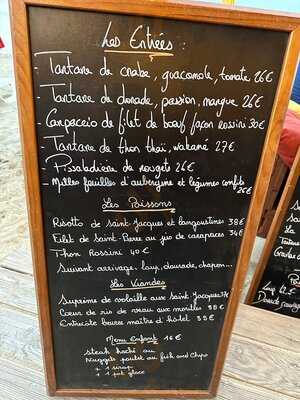 Les Entrées :
- Tartare de crabe, guacamole, tomate 26€
- Tartare de daurade, passion, mangue 26€
- Carpaccio de filet de bœuf façon Rossini 30€
- Tartare de thon thaï, wakamé 27€
- Pissaladière de rougets 26€
- Milles feuilles d'aubergine et légumes confits
26€
Les Poissons
Risotto de saint-Jacques et langoustines 38€
Filet de Saint-Pierre au jus de carapaces 34€
Thon Rossini 40€
Suivant arrivage: loup, daurade, chapon...
Les Viandes
Suprême de volaille aux saint Jacques
Cœur de ris de veau aux morilles 38€
Entrecôte beurre maître d'hôtel 35€
Menu Enfant 16€
steak haché ou
Nuggets poulet ou fish and Chips
+ 1 sirop
+ 1 pot glace